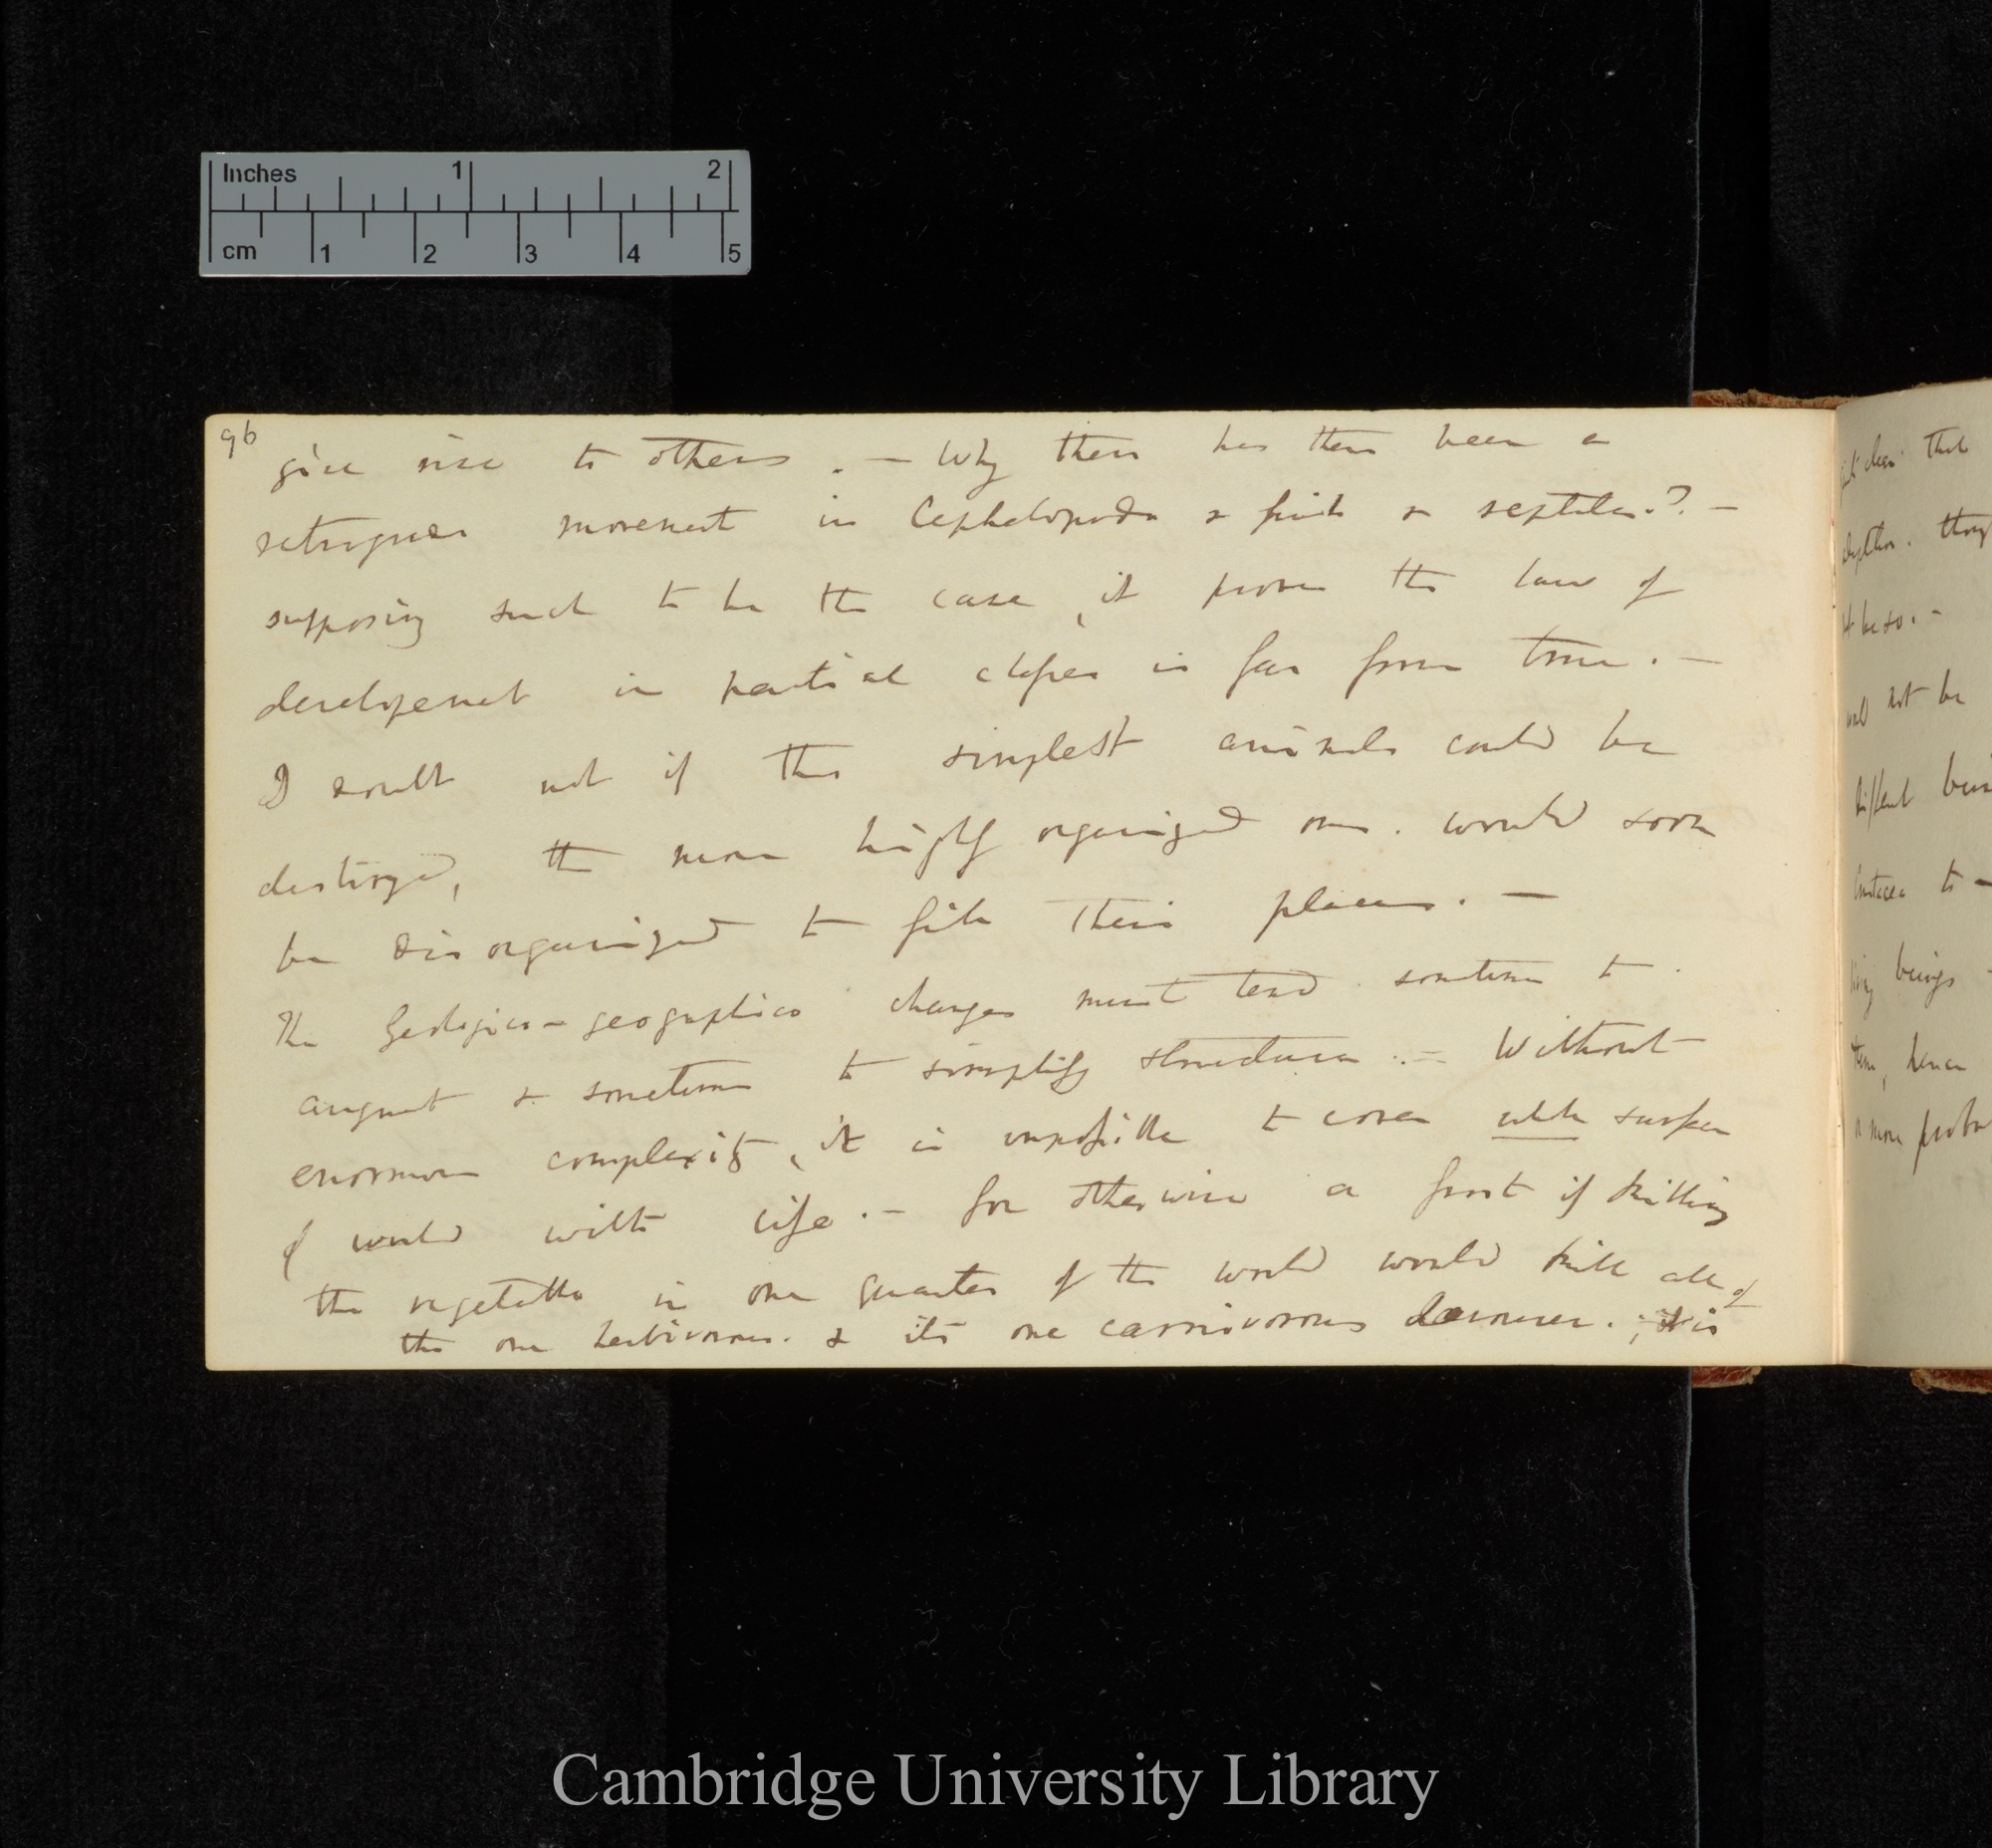 Inches 1 2
cm 1 2 3 4 5
96
give rise to others. — Why then has there been a
retrograde movement in Cephalopoda & fish & reptiles.? —
supposing such to be the case, it proves the law of
developement in partial classes is far from true. —
I doubt not if the simplest animals could be
destroyed, the more highly organized ones. would soon
be disorganized to fill their places. —
The Geologico-geographico changes must tend sometimes to
augment & sometimes to simplify structures. — Without
enormous complexity, it is impossible to cover whole surface
of world with life. — for otherwise a frost if killing
the vegetable in one quarter of the world would kill all of
the one herbivorous. & its one carnivorous devourer. ; it is
clear that
not be
to —
beings
them, hence
more
Cambridge University Library